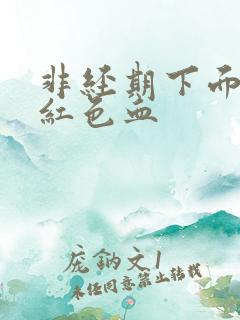 非經期下
紅色血
文1
未经同意禁止转载